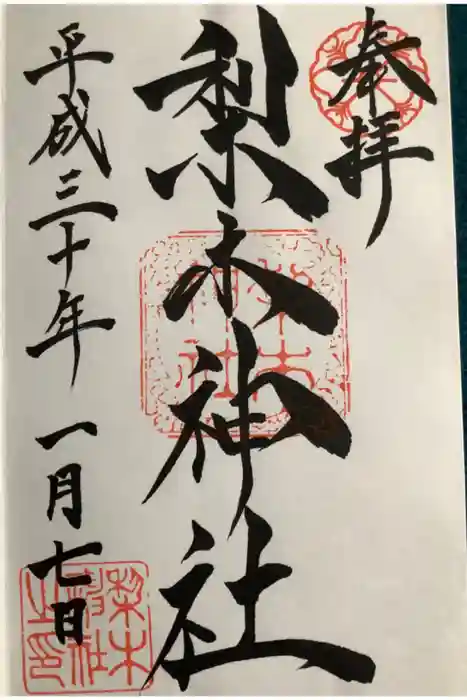 奉拝
梨木神社
平成三十年一月七日
梨木神社
梨木神社之印